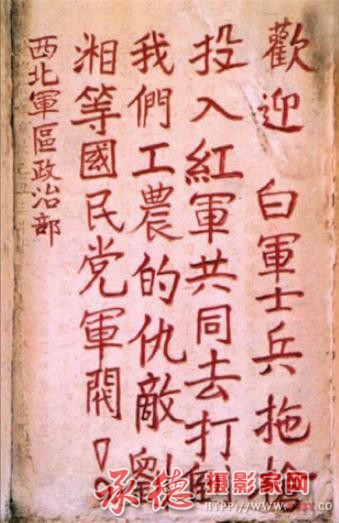 歡迎 白軍士兵拖槍
投入紅軍共同去打倒
我們工農的仇敵劉
湘等國民党軍閥！
西北軍區政治部
承德摄影家网